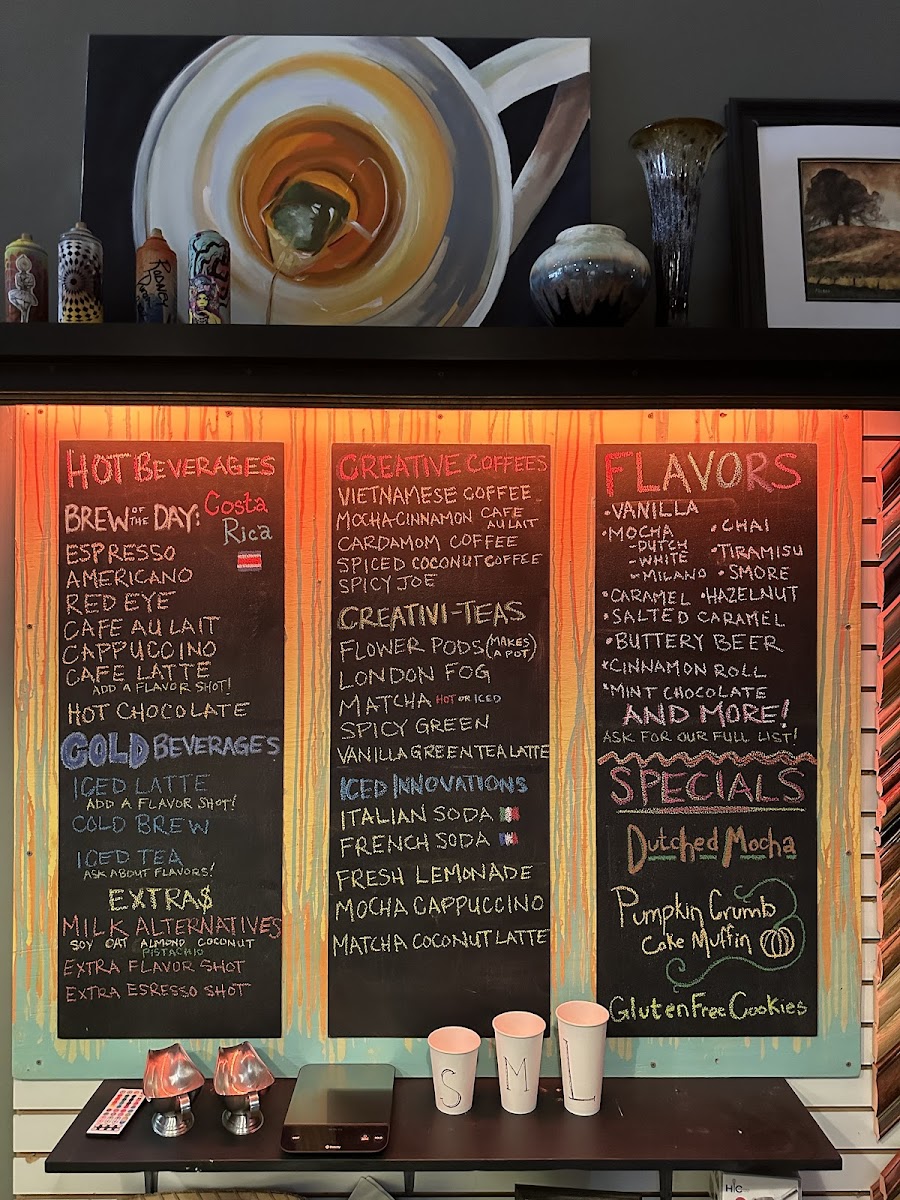 HOT BEVERAGES
BREW OF THE DAY: Costa Rica
ESPRESSO
AMERICANO
RED EYE
CAFE AU LAIT
CAPPUCCINO
CAFE LATTE
ADD A FLAVOR SHOT!
HOT CHOCOLATE
COLD BEVERAGES
ICED LATTE
ADD A FLAVOR SHOT!
COLD BREW
ICED TEA
ASK ABOUT FLAVORS!
EXTRA$
MILK ALTERNATIVES
SOY OAT ALMOND COCONUT
PISTACHIO
EXTRA FLAVOR SHOT
EXTRA ESRESSO SHOT
CREATIVE COFFEES
VIETNAMESE COFFEE
MOCHA-CINNAMON CAFE AU LAIT
CARDAMOM COFFEE
SPICED COCONUT COFFEE
SPICY JOE
CREATIVI-TEAS
FLOWER PODS (MAKES A POT)
LONDON FOG
MATCHA HOT OR ICED
SPICY GREEN
VANILLA GREEN TEA LATTE
ICED INNOVATIONS
ITALIAN SODA
FRENCH SODA
FRESH LEMONADE
MOCHA CAPPUCCINO
MATCHA COCONUT LATTE
FLAVORS
•VANILLA
•MOCHA •CHAI
-DUTCH
-WHITE •TIRAMISU
-MILANO •SMORE
•CARAMEL •HAZELNUT
•SALTED CARAMEL
•BUTTERY BEER
•CINNAMON ROLL
•MINT CHOCOLATE
AND MORE!
ASK FOR OUR FULL LIST!
SPECIALS
Dutched Mocha
Pumpkin Crumb
Cake Muffin
Gluten Free Cookies
S M L